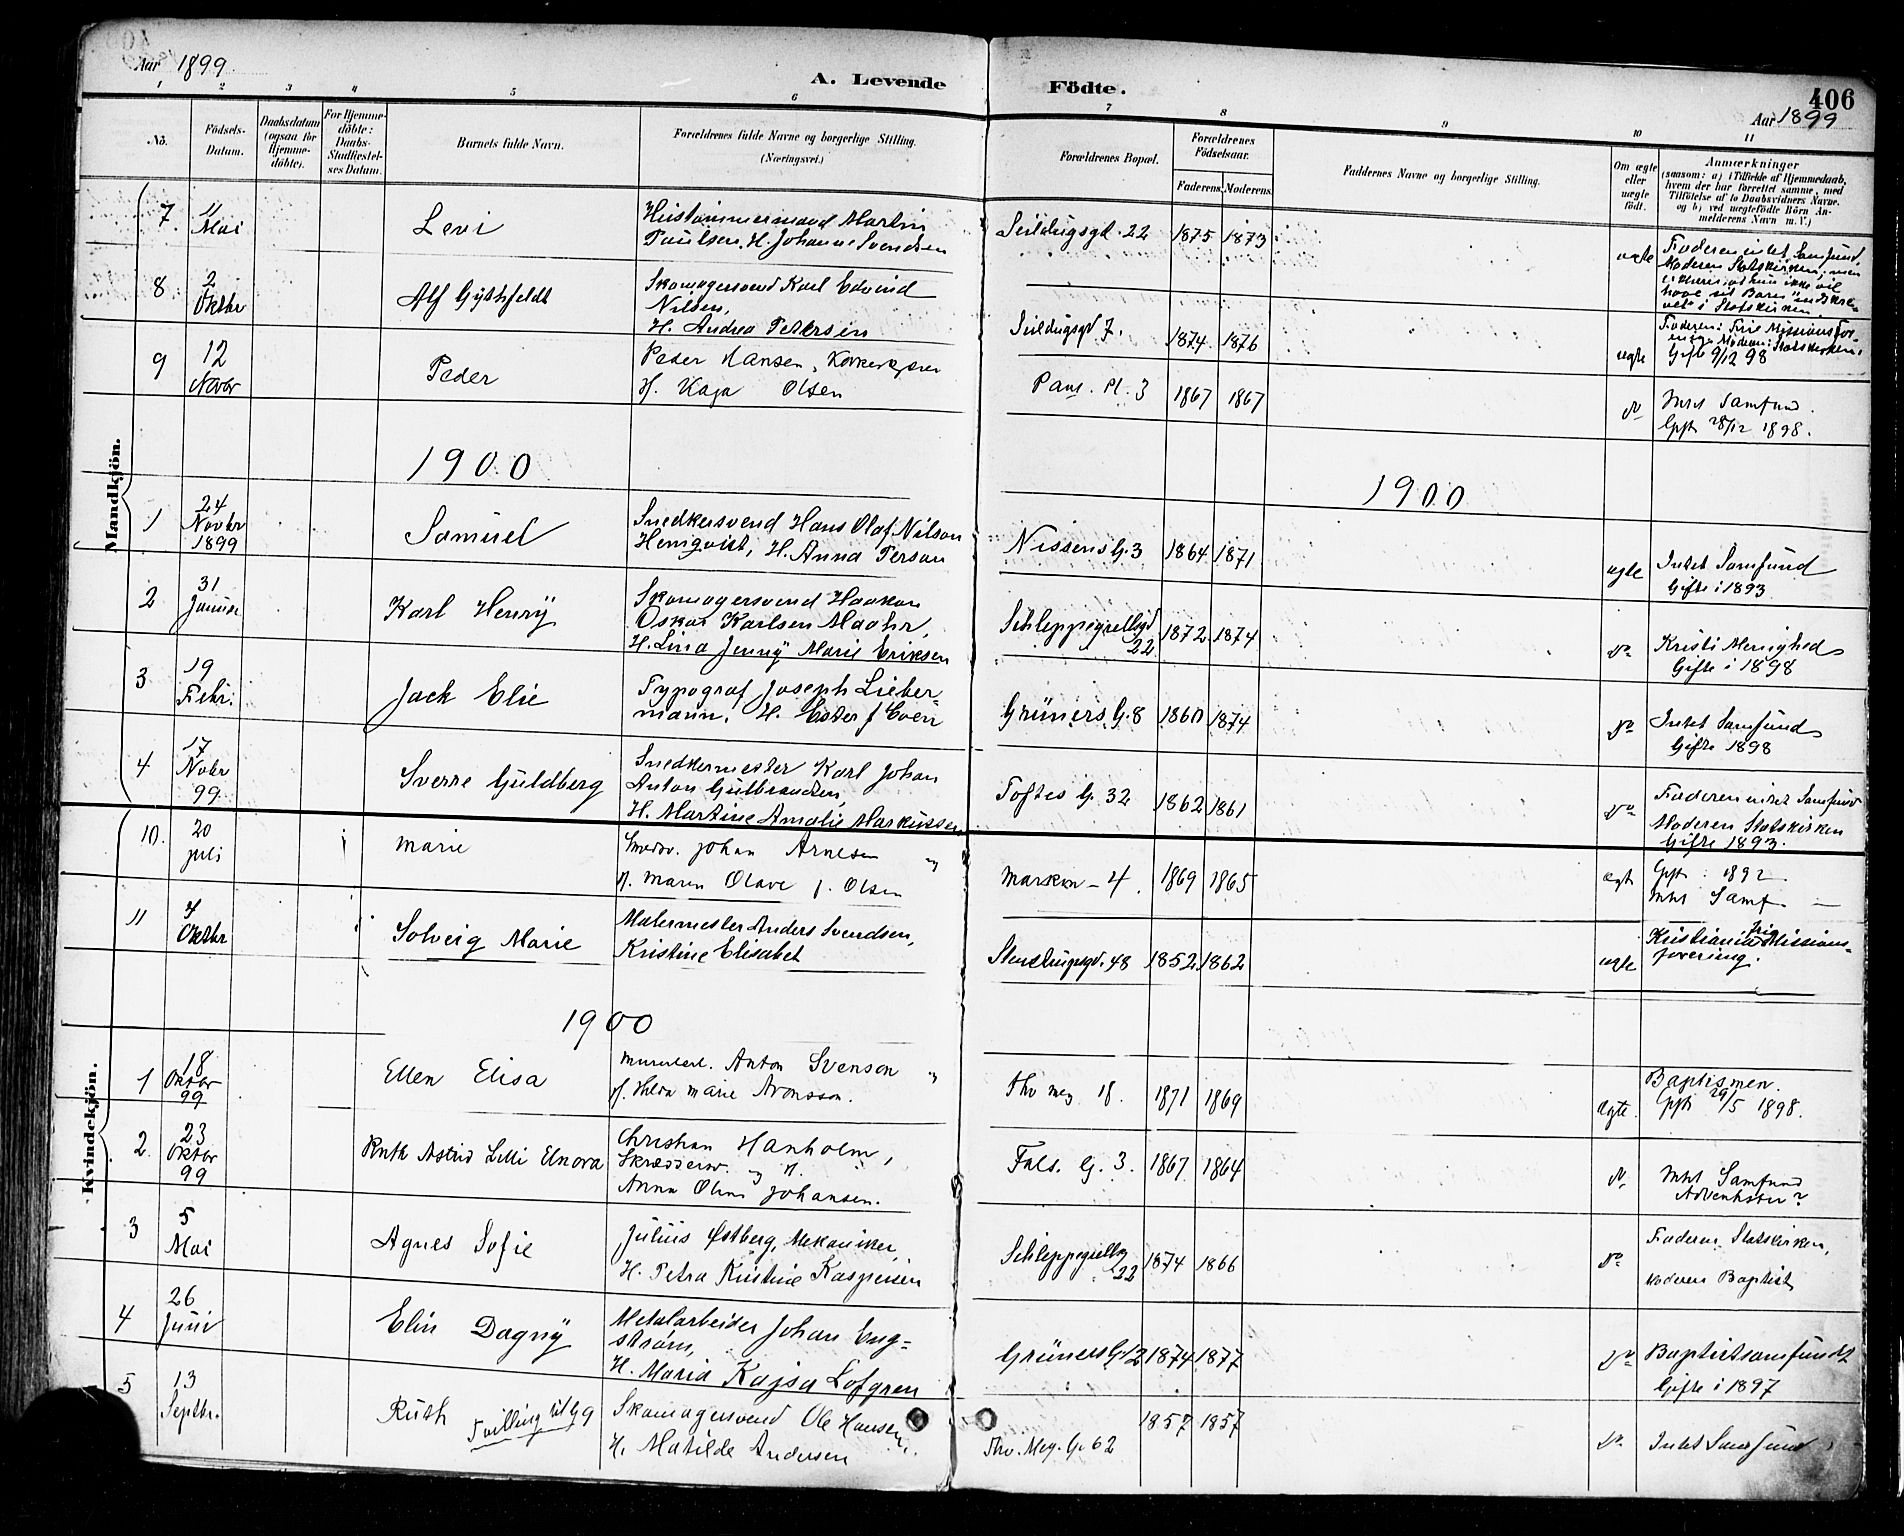 Aar 1899
A. Levende Födte.
406
Aar 1899
1 2 3 4 5 6 7 8 9 10 11
No.
Födsels-Datum.
Daabsdatum (ogsaa for Hjemme-döbte).
For Hjemme-döbte: Daabs-Stadfæstel-ses Datum.
Barnets fulde Navn.
Forældrenes fulde Navne og borgerlige Stilling. (Næringsvei.)
Forældrenes Bopæl.
Forældrenes Födselsaar.
Faderens. Moderens.
Faddernes Navne og borgerlige Stilling.
Om ægte eller uægte født.
Anmærkninger
(saasom: a) i Tilfælde af Hjemmedaab, hvem der har forrettet samme, med Tilföielse af to Daabsvidners Navne. og b) ved uægtefödte Börn An-melderens Navn m. V.)
Mandkjön.
7. 11 Mai
Levi
Hustømmermand Martin
Paulsen, H. Johanne Svendsen
Seildugsgd. 22 1875 1873
ægte
Faderen intet Samfund,
Moderen Statskirken, men
8 2 Oktbr
Alf Gythfeldt
Skomagersvend Karl Edvind
Nilsen,
H. Andrea Petersen
Seildugsgd 7. 1874 1876
ægte
Faderen: Frie Missionsfor-
ening. Moderen: Statskirken.
Gifte 9/12 98
9 12 Novbr
Peder
Peder Hansen,
H. Kaja Olsen
Paul. Pl. 3 1867 1867
do
Intet Samfund.
Gift 28/12 1898.
1900
1900
1 24 Novbr 1899
Samuel
Snedkersvend Hans Olaf Nilson
Hemqvist, H. Anna Person
Nissens G. 3 1864 1871
ægte
Intet Samfund
Gifte i 1893
2 31 Januar
Karl Henry
Skomagersvend Haakon
Oskar Karlsen Maahr,
H. Lina Jenny Marie Eriksen
Schleppegrellsgd 22 1872 1874
do
Kristi Menighed
Gifte i 1898
3 19 Febr.
Jack Elie
Typograf Joseph Lieber
mann, H. Ester f. Even
Grüners G. 8 1860 1874
do
Intet Samfund
Gifte 1898
4 17 Novbr 99
Sverre Guldberg
Snedkermester Karl Johan
Anton Gulbrandsen,
H. Martine Amalie Markussen
Toftes G. 32 1862 1861
do
Faderen intet Samfund
Moderen Statskirken
Gifte 1893.
Kvindekjön.
10. 20 juli
Marie
Johan Arnesen og
H. Maren Olave f. Olsen
Markvn - 4. 1869 1865
ægte
Gift 1892
Intet Samf. —
11 4 Oktbr
Solveig Marie
Malermester Anders Svendsen,
Kristine Elisabet
Stenstrupsgd. 48 1852 1862
ægte
Kristiania frie Missions-
forening.
1900
1 18 Oktbr 99
Ellen Elisa
Murerarb. Anton Svenson og
H. Hilda Marie Aronsson.
Thv Mey 18. 1871 1869
Ægte.
Baptismen.
Gift 29/5 1898.
2. 23 Oktbr 99
Ruth Astrid Lilli Elnora
Christian Hanholm,
Skrædderm. og H.
Anna Oline Johansen.
Fals. G. 3. 1867 1864
do
Intet Samfund
Adventister?
3 5 Mai
Agnes Sofie
Julius Østberg, Mekaniker,
H. Petra Kristine Kaspersen
Schleppegrellsg 22 1874 1866
do
Faderen Statskirken,
Moderen Baptist
4 26 Juni
Elin Dagny
Metalarbeider Johan Eng=
strøm,
H. Maria Kajsa Lofgren
Grüners G. 12 1874 1877
do
Baptistsamfundet
Gifte i 1897
5 13 Septbr.
Ruth Tvilling til G 9
Skomagersvend Ole Hansen,
H. Matilde Andersen
Thv. Mey. G. 62 1857 1857
do
Intet Samfund